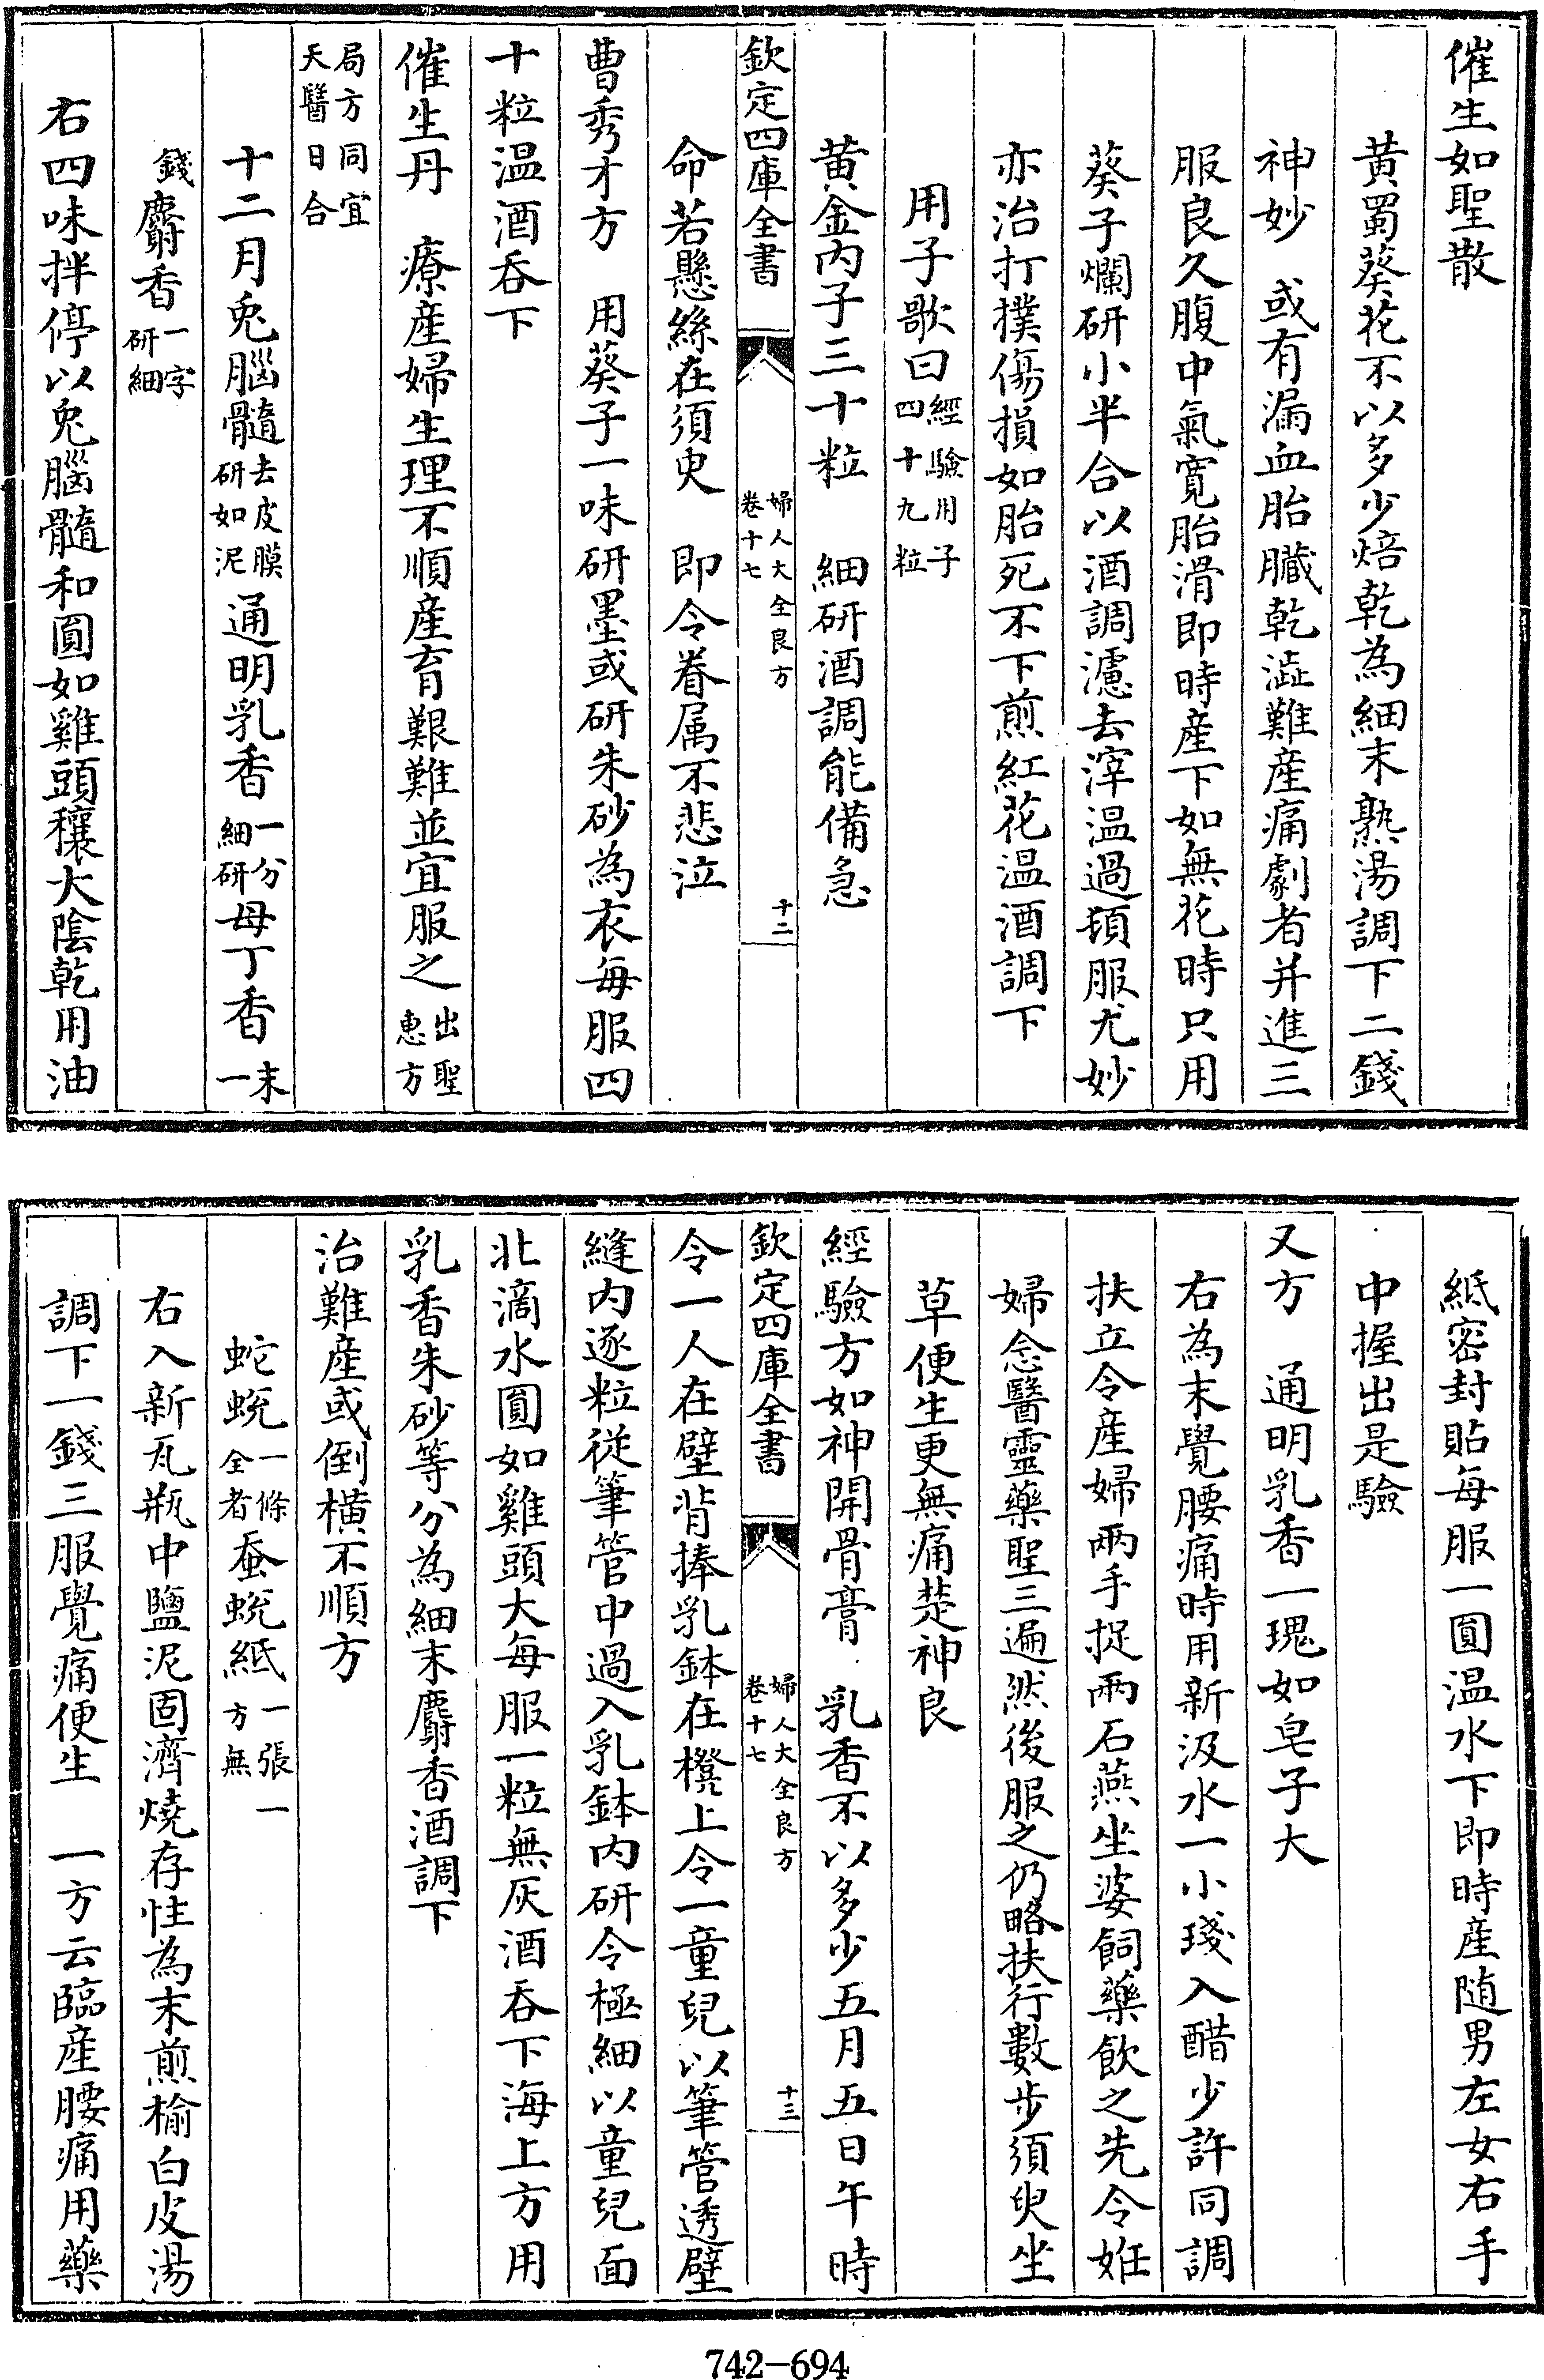 催生如聖散
黃蜀葵花不以多少焙乾為細末熟湯調下二錢
神妙　或有漏血胎臟乾澁難產痛劇者并進三
服良久腹中氣寬胎滑即時產下如無花時只用
葵子爛研小半合以酒調濾去滓温過頓服尤妙
亦治打撲傷損如胎死不下煎紅花温酒調下
用子歌曰經驗用子四十九粒
黃金內子三十粒　細研酒調能備急
欽定四庫全書　婦人大全良方卷十七　十二
命若懸絲在須臾　即令眷属不悲泣
曹秀才方　用葵子一味研墨或研朱砂為衣每服四
十粒温酒吞下
催生丹　療產婦生理不順產育艱難並宜服之出聖惠方
局方同宜天醫日合
十二月兔腦髓去皮膜研如泥通明乳香一分細研母丁香末一
錢麝香一字研細
右四味拌停以兔腦髓和圓如雞頭穰大陰乾用油
紙密封貼每服一圓温水下即時產随男左女右手
中握出是驗
又方　通明乳香一瑰如皂子大
右為末覺腰痛時用新汲水一小琖入醋少許同調
扶立令產婦兩手捉兩石燕坐婆飼藥飲之先令姙
婦念醫靈藥聖三遍然後服之仍略扶行數步須臾坐
草便生更無痛楚神良
經驗方如神開骨膏　乳香不以多少五月五日午時
欽定四庫全書　婦人大全良方卷十七　十三
令一人在壁背捧乳鉢在櫈上令一童兒以筆管透壁
縫內逐粒從筆管中過入乳鉢內研令極細以童兒面
北滴水圓如雞頭大每服一粒無灰酒吞下海上方用
乳香朱砂等分為細末麝香酒調下
治難產或倒橫不順方
蛇蛻一條全者蚕蛻紙一張一方無
右入新瓦瓶中鹽泥固濟燒存性為末煎榆白皮湯
調下一錢三服覺痛便生　一方云臨產腰痛用藥
742-694